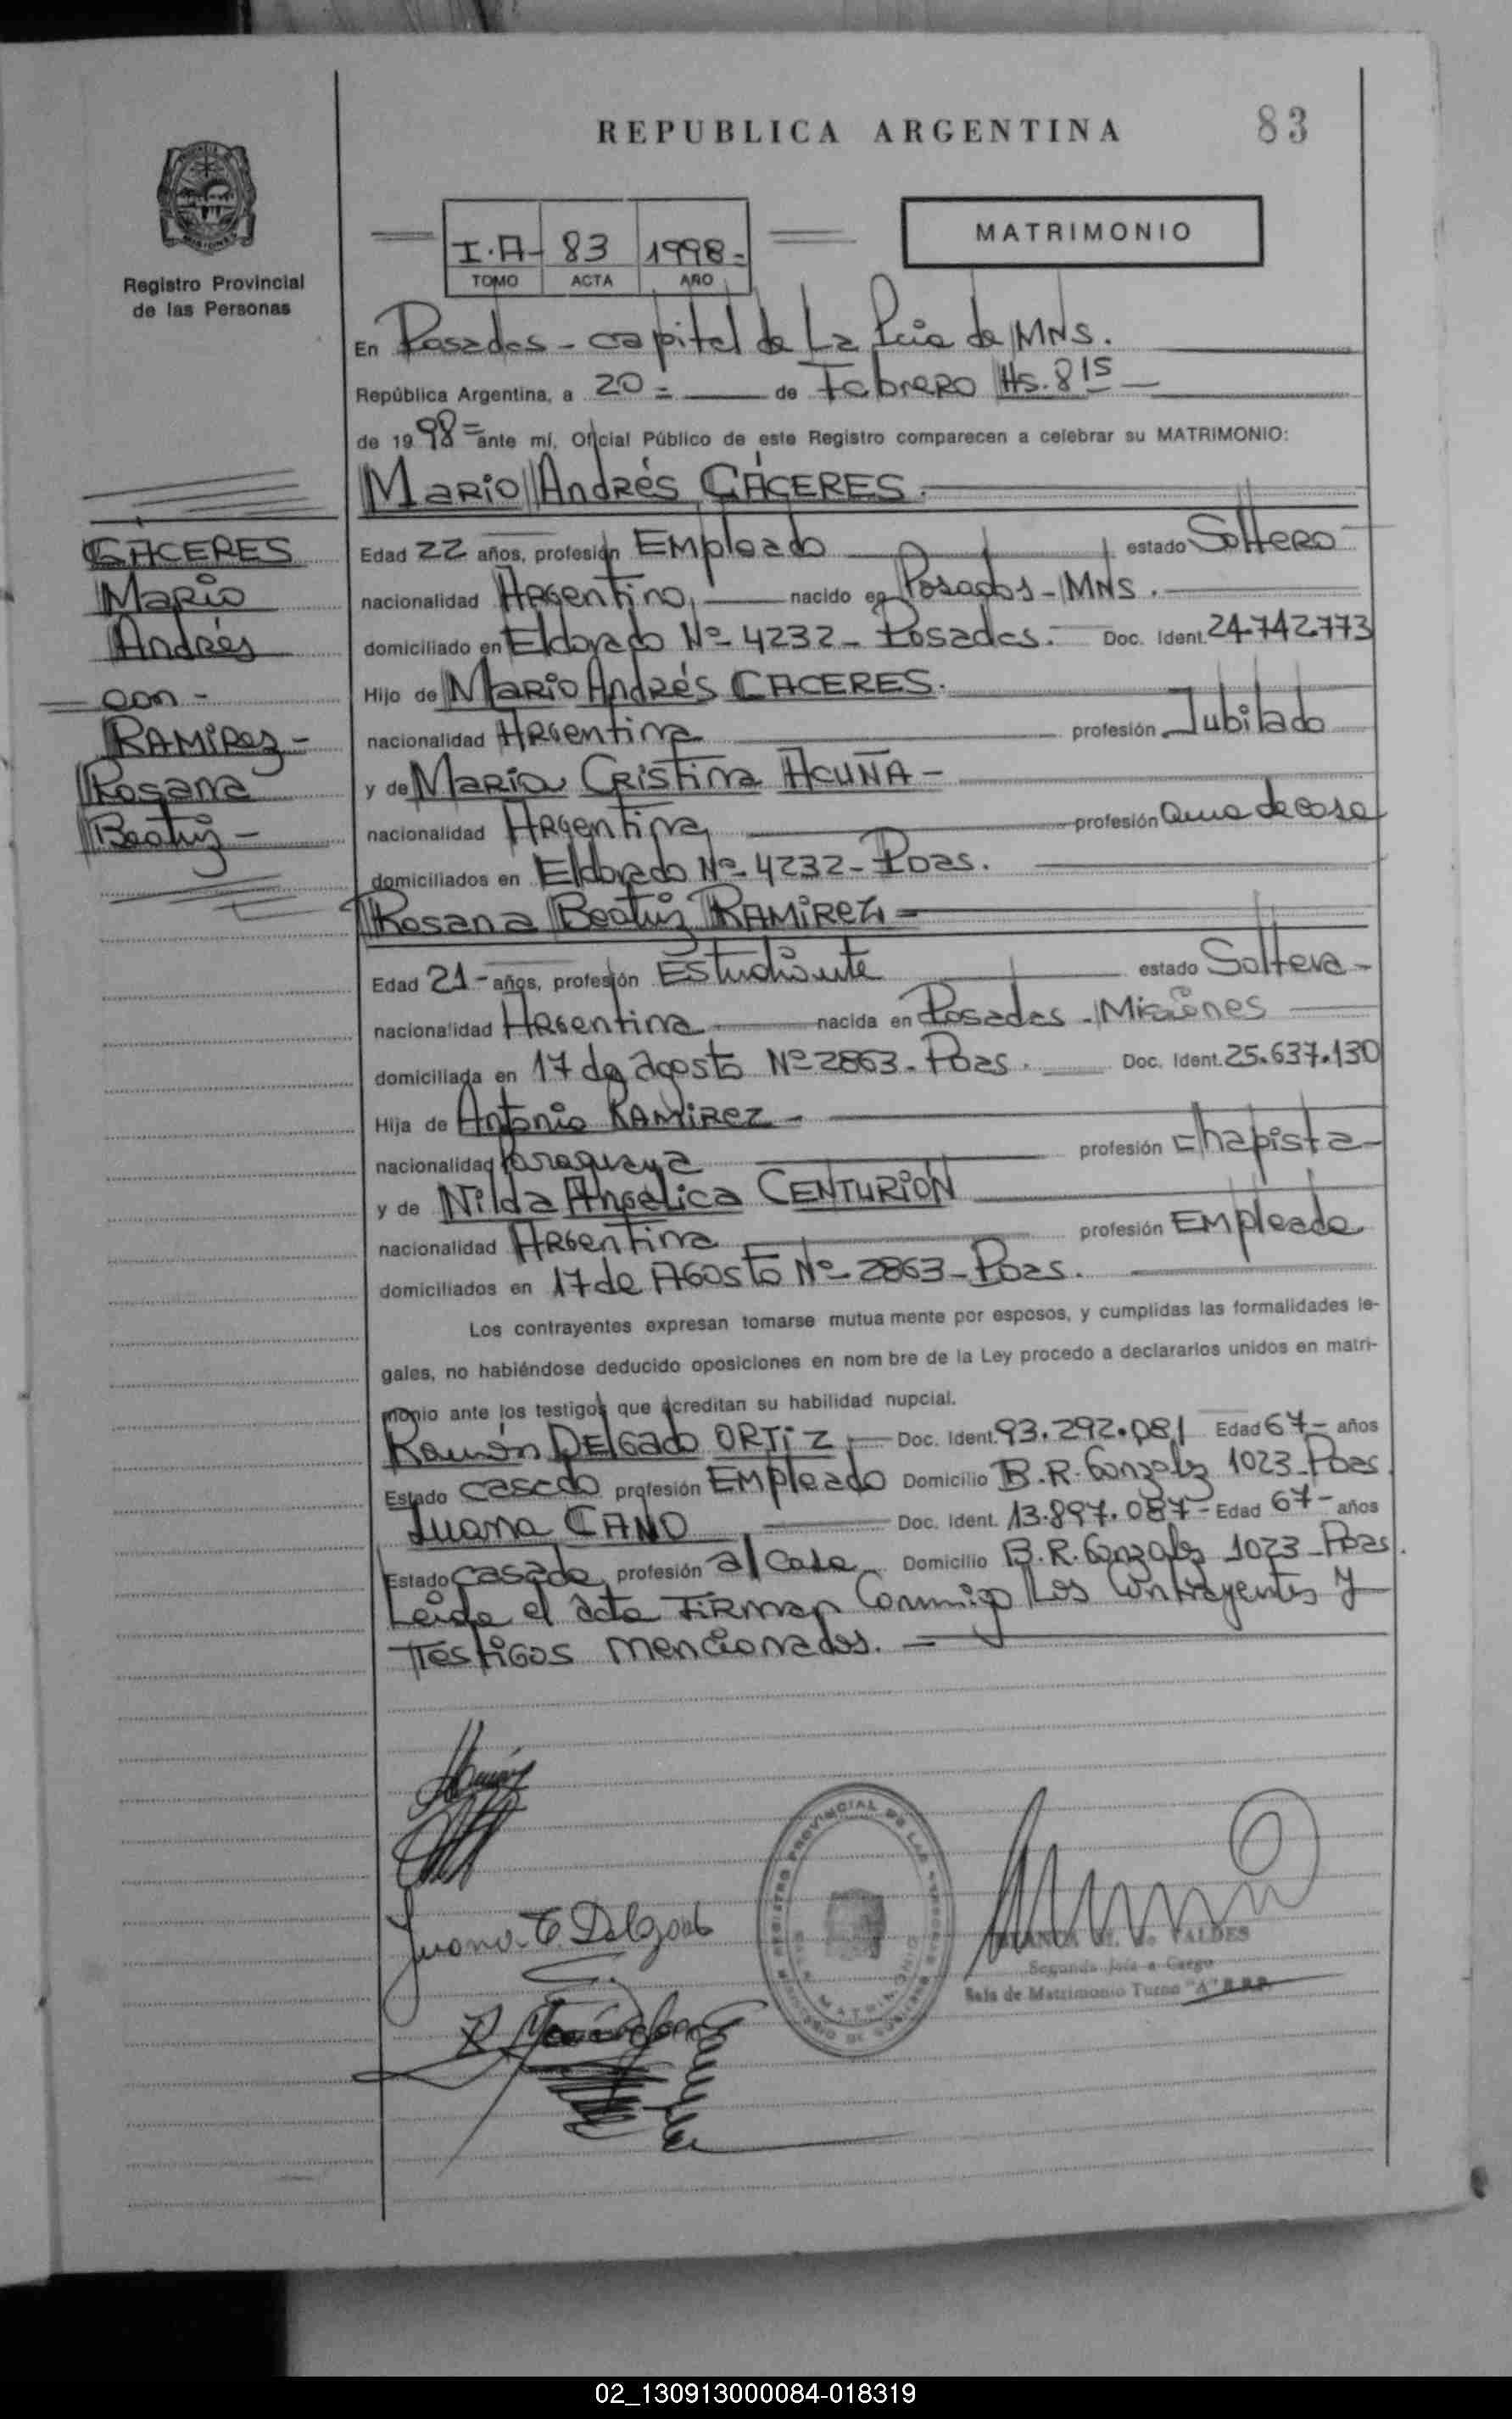 REPUBLICA ARGENTINA
83
Registro Provincial
de las Personas
I.A- 83 1998-
TOMO ACTA AÑO
MATRIMONIO
En Posadas - capital de La Pcia de MNS.
República Argentina, a 20 = de Febrero Hs. 8 15
de 19 98 = ante mí, Oficial Público de este Registro comparecen a celebrar su MATRIMONIO:
Mario Andrés CÁCERES.
CÁCERES
Mario
Andrés
con -
RAMIRez -
Rosana
Beatriz -
Edad 22 años, profesión EMpleado estado Soltero
nacionalidad Argentina, nacido en Posadas - MNS.
domiciliado en Eldorado Nº 4232 - Posadas. Doc. Ident. 24.742.773
Hijo de Mario Andrés CACERES.
nacionalidad Argentina profesión Jubilado
y de María Cristina ACUÑA -
nacionalidad Argentina profesión Ama de casa
domiciliados en Eldorado Nº 4232 - Pdas.
Rosana Beatriz RAMIRez =
Edad 21 - años, profesión Estudiante estado Soltera -
nacionalidad Argentina nacida en Posadas - Misiones
domiciliada en 17 de agosto Nº 2863 - Pdas. Doc. Ident. 25.637.130
Hija de Antonio RAMIRez -
nacionalidad Paraguaya profesión chapista -
y de Nilda Angelica CENTURIÓN
nacionalidad Argentina profesión EMpleada
domiciliados en 17 de Agosto Nº 2863 - Pdas.
Los contrayentes expresan tomarse mutua mente por esposos, y cumplidas las formalidades le-
gales, no habiéndose deducido oposiciones en nom bre de la Ley procedo a declararlos unidos en matri-
monio ante los testigos que acreditan su habilidad nupcial.
Ramón DELGADO ORTIZ, Doc. Ident. 93.292.081 Edad 67 - años
Estado casado profesión EMpleado Domicilio B.R. Gonzalez 1023 - Pdas.
Juana CANO Doc. Ident. 13.897.087 - Edad 67 - años
Estado casada, profesión a/casa Domicilio B.R. Gonzalez 1023 - Pdas.
Leida el acta Firman Conmigo Los Contrayentes y
Testigos mencionados. -
Juana C. Delgado
REGISTRO PROVINCIAL DE LAS PERSONAS
MATRIMONIO
MINISTERIO DE GOBIERNO
VALDES
Segunda Jefa a Cargo
Sala de Matrimonio Turno "A" R.P.P.
02_130913000084-018319